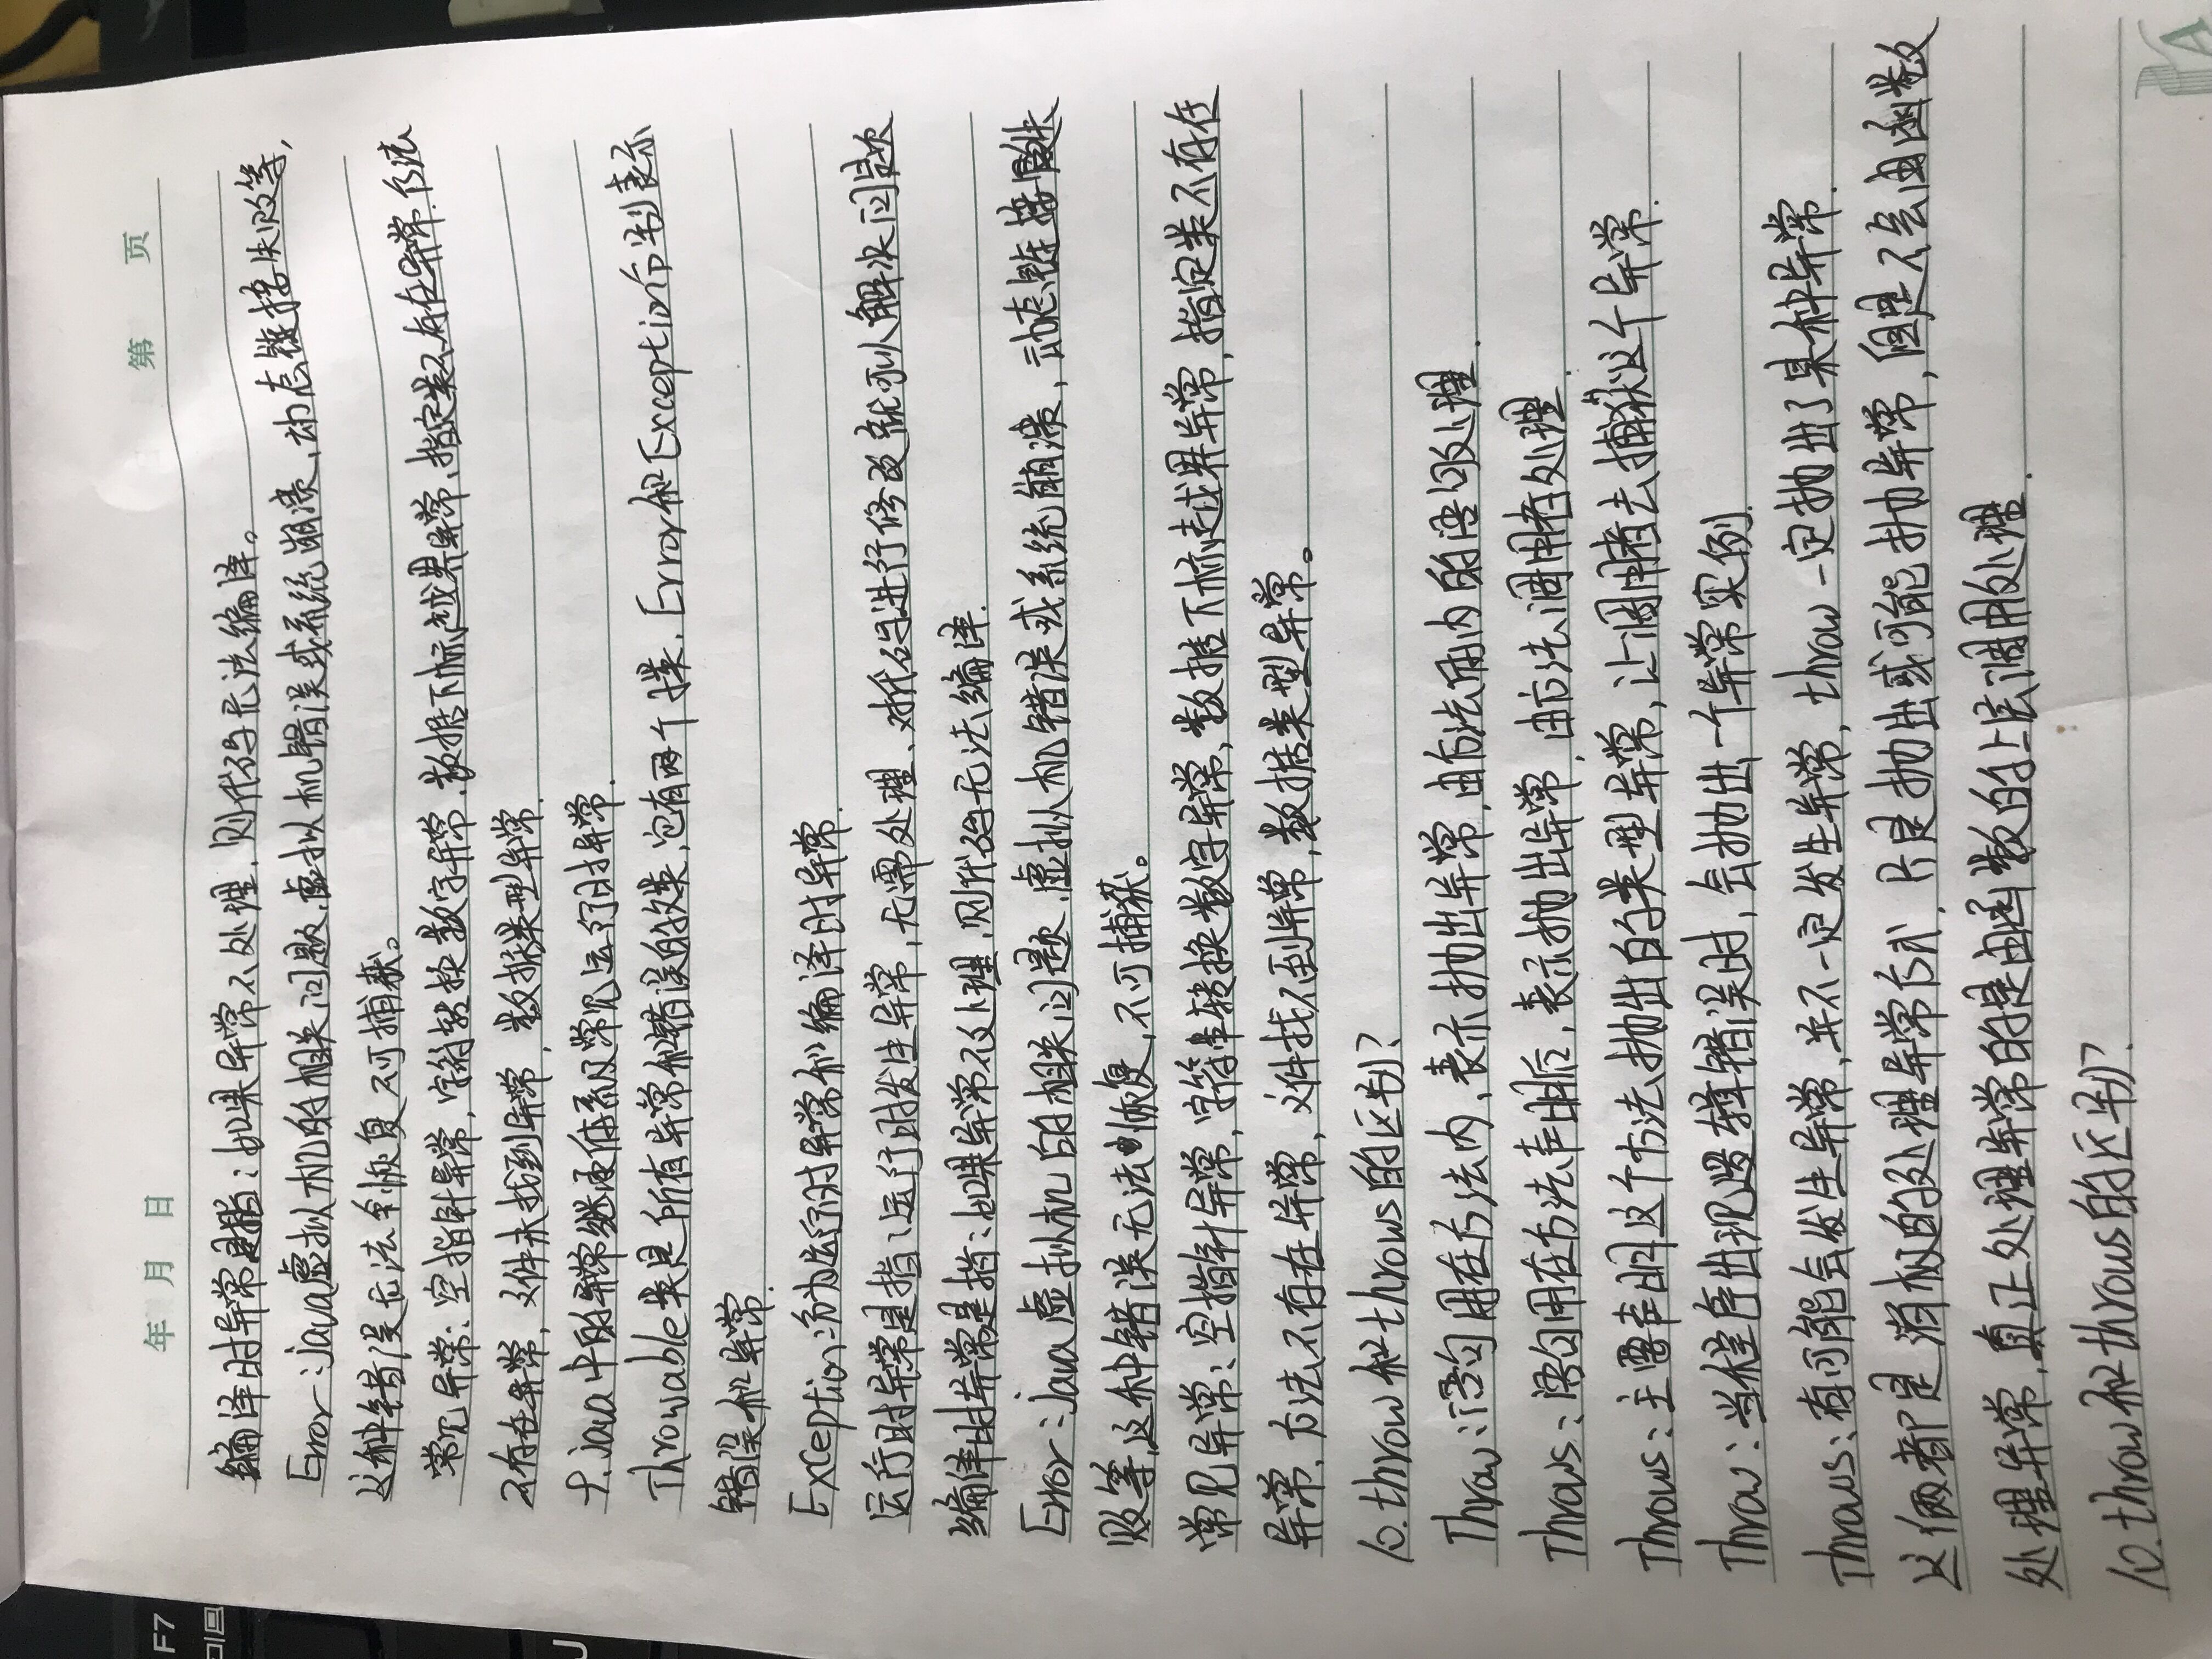 F7
J
年 月 日 第 页
编译时异常是指:如果异常不处理,则代码无法编译。
Error:java虚拟机的相关问题,虚拟机错误或系统崩溃,动态链接失败等,
这种错误无法恢复不可捕获。
常见异常:空指针异常,字符转换数字异常,数据下标越界异常,指定类不存在异常,方法
不存在异常,文件未找到异常,数据类型异常.
9.java中的异常继承体系及常见运行时异常.
Throwable类是所有异常和错误的父类,它有两个子类,Error和Exception分别表示
错误和异常.
Exception:分为运行时异常和编译时异常.
运行时异常是指:运行时发生异常,无需处理、对代码进行修改就可以解决问题
编译时异常是指:如果异常不处理,则代码无法编译.
Error:java虚拟机的相关问题,虚拟机错误或系统崩溃,动态链接失
败等,这种错误无法恢复,不可捕获。
常见异常:空指针异常,字符串转换数字异常,数据下标越界异常,指定类不存在
异常,方法不存在异常,文件找不到异常,数据类型异常。
10.throw和throws的区别?
Throw:语句用在方法内,表示抛出异常,由方法体内的语句处理.
Throws:语句用在方法声明后,表示抛出异常,由方法调用者处理.
Throws:主要声明这个方法抛出的类型异常,让调用者去捕获这个异常.
Throw:当程序出现逻辑错误时,会抛出一个异常实例.
Throws:有可能会发生异常,并不一定发生异常,throw一定抛出了某种异常.
这俩都是消极的处理异常方式,只是抛出或可能抛异常,但是不会由函数
处理异常,真正处理异常的是由函数的上层调用处理.
10.throw和throws的区别?